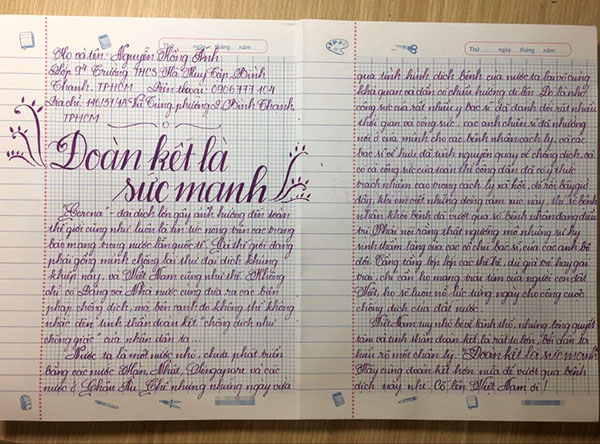 Họ và tên: Nguyễn Hồng Anh
Lớp 9 Trường THCS Hà Huy Tập, Bình
Thạnh, TPHCM
Địa chỉ:
TPHCM
Đoàn kết là
sức mạnh
"Corona" - đại dịch lớn gây ảnh hưởng đến toàn
thế giới cũng như luôn là tin tức nóng trên các trang
báo mạng trong nước lẫn quốc tế. Cả thế giới đang
phải gồng mình chống lại thứ đại dịch khủng
khiếp này, và Việt Nam cũng như thế. Không
chỉ có Đảng và Nhà nước cùng đưa ra các biện
pháp chống dịch, mà bên cạnh đó không thể không
nhắc đến tinh thần đoàn kết "chống dịch như
chống giặc" của nhân dân ta...
Nước ta là một nước nhỏ, chưa phát triển
bằng các nước Hàn, Nhật, Singapore và các
nước ở Châu Âu. Thế nhưng những ngày vừa
Thứ ngày tháng năm
qua tình hình dịch bệnh của nước ta lại vô cùng
khả quan và dần có chiều hướng đi lên. Đó là nhờ
công sức của rất nhiều y bác sĩ đã dành đời rất nhiều
thời gian và công sức, các anh chiến sĩ đã nhường
nơi ở của mình cho các bệnh nhân cách ly, và các
bác sĩ về hưu đã tình nguyện quay về chống dịch, và
có cả công sức của toàn thể công dân đã có ý thức
trách nhiệm cao trong cách ly xã hội, để rồi bây giờ
đây, khi em viết những dòng cảm xúc này, thì số bệnh
nhân khỏi bệnh đã vượt qua số bệnh nhân đang điều
trị. Phải nói rằng thật ngưỡng mộ những sự hy
sinh thầm lặng của các cô chú bác sĩ, của các anh bộ
đội. Từng tầng lớp lớp các thế hệ, dù già trẻ hay gái
trai, chỉ cần họ mang trái tim của người con đất
Việt, họ sẽ luôn nỗ lực từng ngày cho công cuộc
chống dịch của đất nước.
Việt Nam tuy nhỏ bé về lãnh thổ, nhưng lòng quyết
tâm và tinh thần đoàn kết là rất to lớn, bởi dân ta
hiểu rõ một chân lý: "Đoàn kết là sức mạnh".
Hãy cùng đoàn kết hơn nữa để vượt qua bệnh
dịch này nhé. Cố lên Việt Nam ơi!